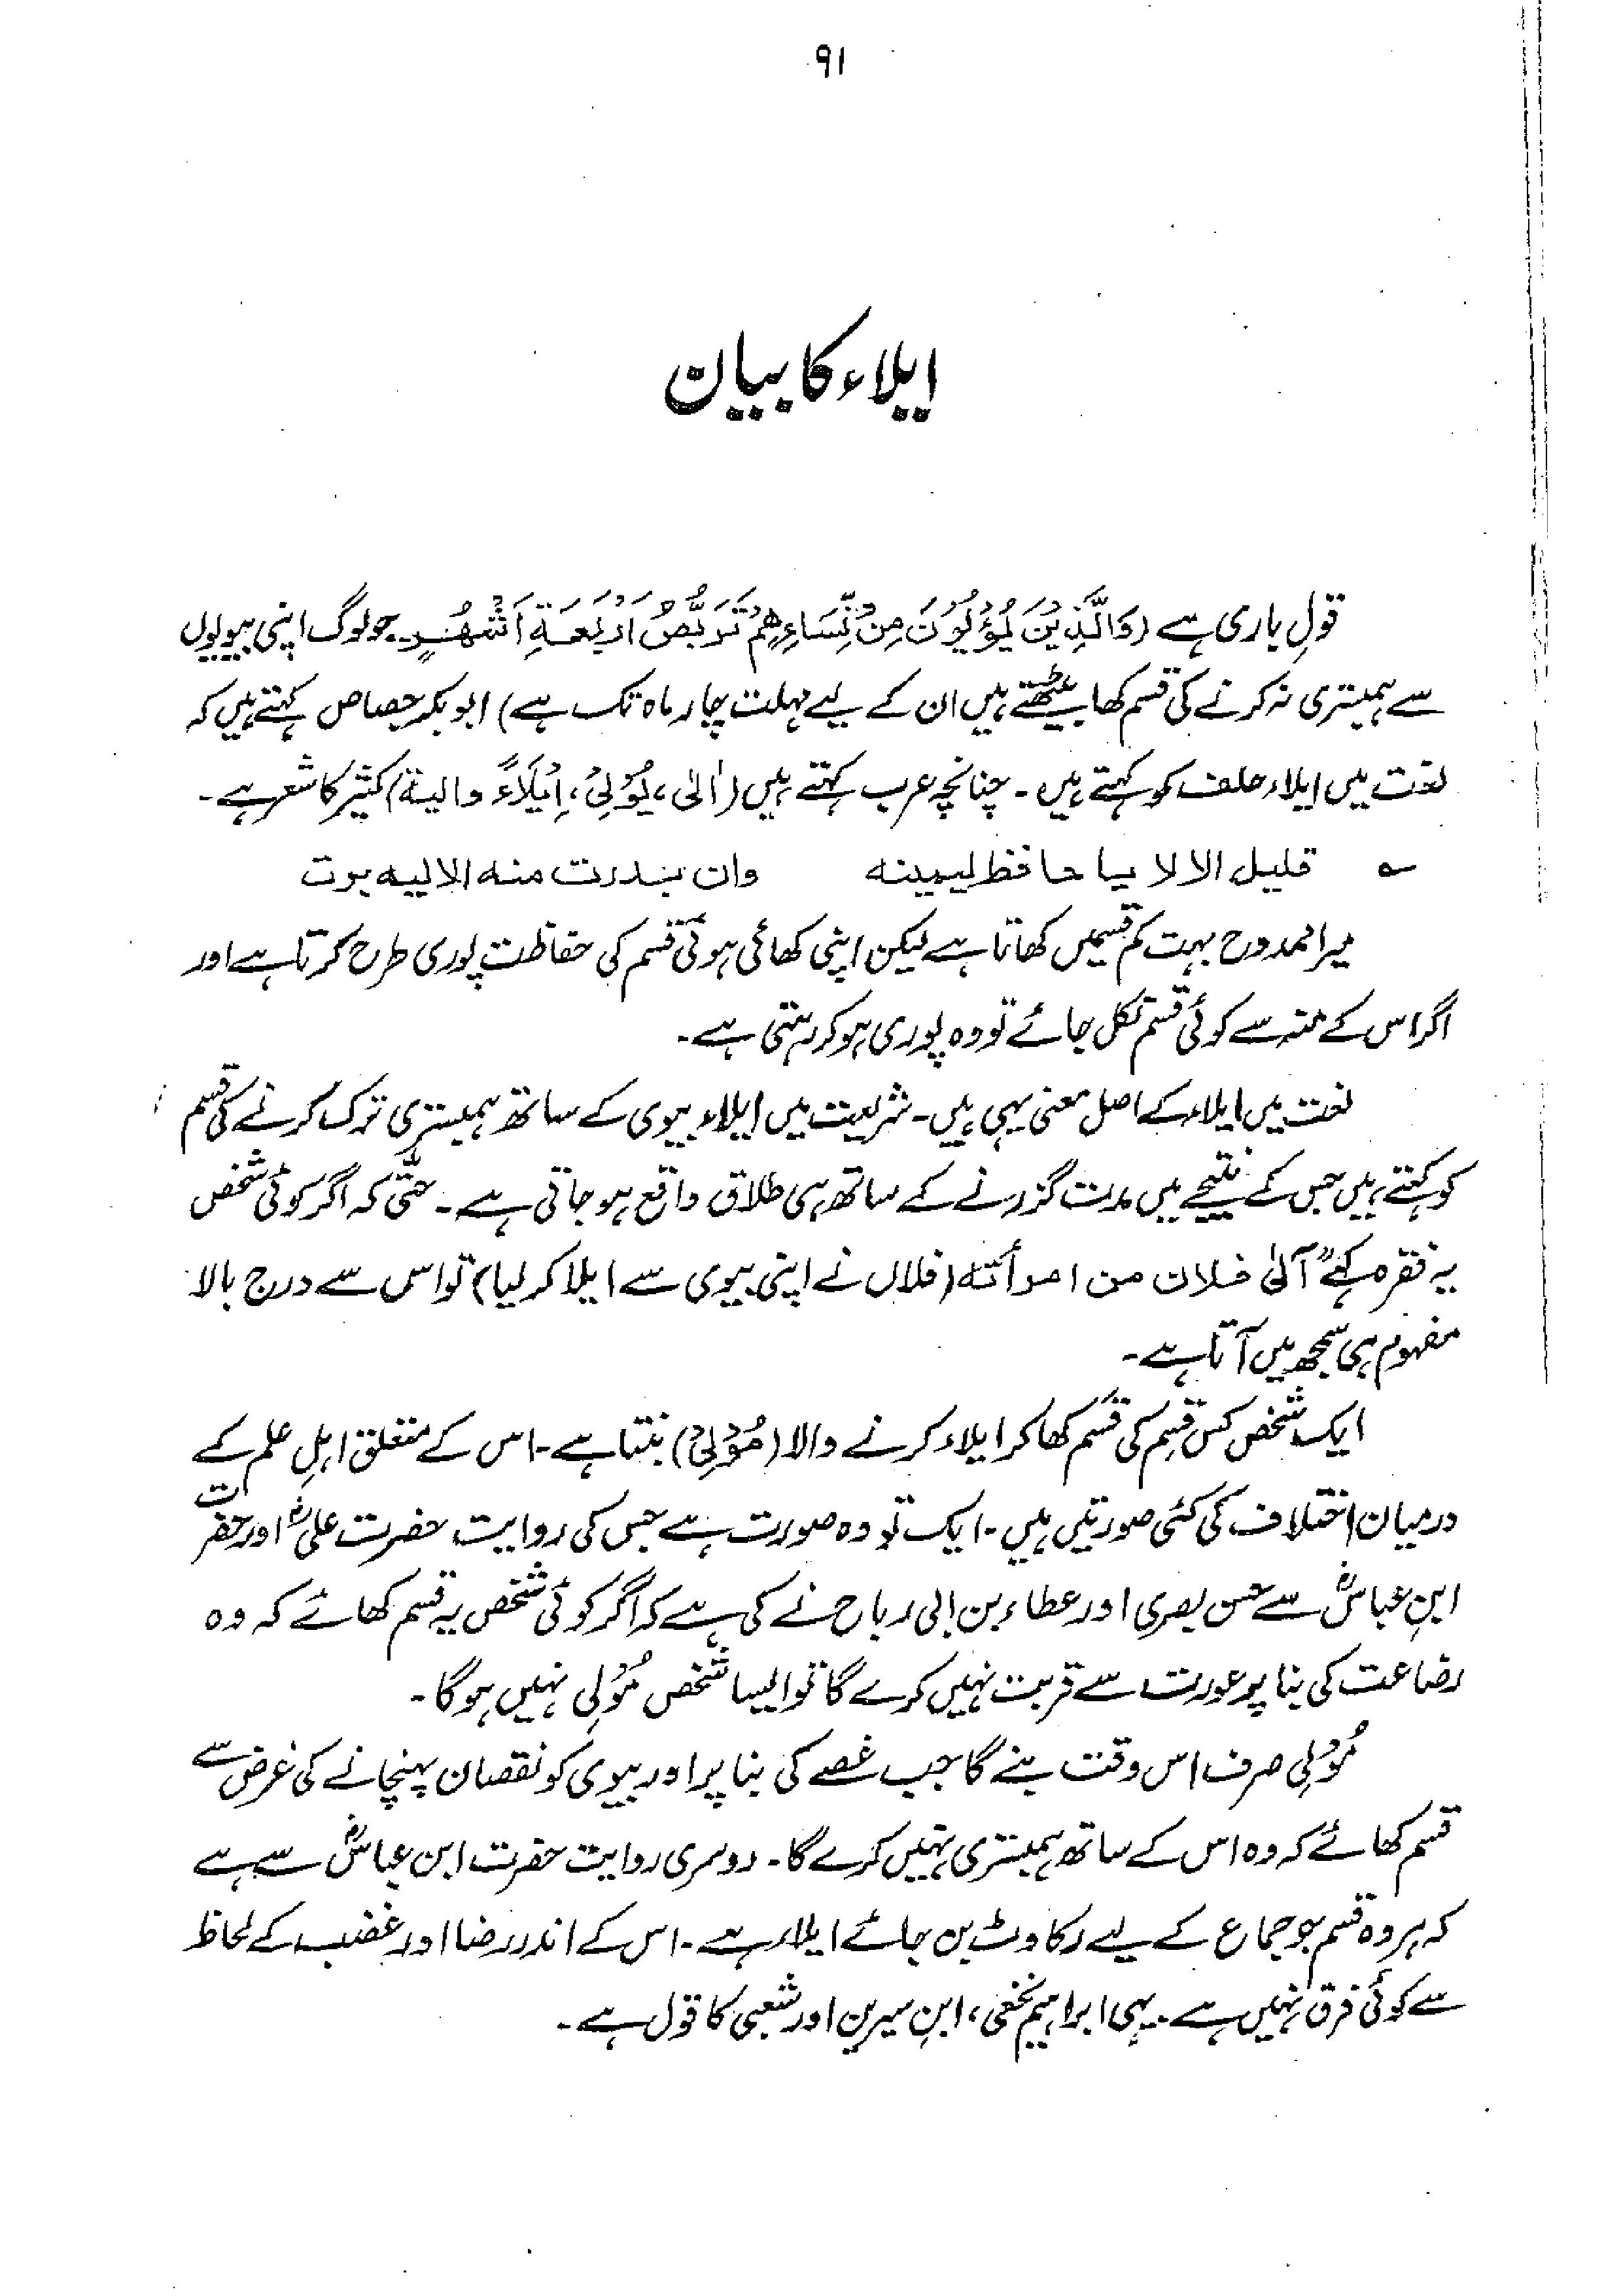 ۹۱
ایلاء کا بیان
قولِ باری ہے (وَالَّذِیْنَ یُؤْلُوْنَ مِنْ نِّسَاءِهِمْ تَرَبُّصُ اَرْبَعَةِ اَشْهُرٍ۔ جو لوگ اپنی بیویوں
سے ہمبستری نہ کرنے کی قسم کھا بیٹھتے ہیں ان کے لیے مہلت چار ماہ تک ہے) ابوبکر جصاص کہتے ہیں کہ
لغت میں ایلاء حلف کو کہتے ہیں۔ چنانچہ عرب کہتے ہیں (اٰلٰی، یُؤْلِیْ، اِیْلَاءً والیة) کثیر کا شعر ہے۔
؎ قلیل الالا یا حافظ لیمینه وان بدرت منه الالیه برت
میرا ممدوح بہت کم قسمیں کھاتا ہے لیکن اپنی کھائی ہوئی قسم کی حفاظت پوری طرح کرتا ہے اور
اگر اس کے منہ سے کوئی قسم نکل جائے تو وہ پوری ہو کر رہتی ہے۔
لغت میں ایلاء کے اصل معنی یہی ہیں۔ شریعت میں ایلاء بیوی کے ساتھ ہمبستری ترک کرنے کی قسم
کو کہتے ہیں جس کے نتیجے میں مدت گزرنے کے ساتھ ہی طلاق واقع ہو جاتی ہے۔ حتّٰی کہ اگر کوئی شخص
یہ فقرہ کہے "آلیٰ فلان من امرأته (فلاں نے اپنی بیوی سے ایلا کر لیا) تو اس سے درج بالا
مفہوم ہی سمجھ میں آتا ہے۔
ایک شخص کس قسم کی قسم کھا کر ایلاء کرنے والا (مُؤْلِیْ) بنتا ہے۔ اس کے متعلق اہلِ علم کے
درمیان اختلاف کی کئی صورتیں ہیں۔ ایک تو وہ صورت ہے جس کی روایت حضرت علیؓ اور حضرت
ابنِ عباسؓ سے حسن بصری اور عطاء بن ابی رباح نے کی ہے کہ اگر کوئی شخص یہ قسم کھائے کہ وہ
رضاعت کی بنا پر عورت سے قربت نہیں کرے گا تو ایسا شخص مُوْلِی نہیں ہو گا۔
مُوْلِی صرف اس وقت بنے گا جب غصے کی بنا پر اور بیوی کو نقصان پہنچانے کی غرض سے
قسم کھائے کہ وہ اس کے ساتھ ہمبستری نہیں کرے گا۔ دوسری روایت حضرت ابن عباسؓ سے ہے
کہ ہر وہ قسم جو جماع کے لیے رکاوٹ بن جائے ایلاء ہے۔ اس کے اندر رضا اور غضب کے لحاظ
سے کوئی فرق نہیں ہے۔ یہی ابراہیم نخعی، ابنِ سیرین اور شعبی کا قول ہے۔